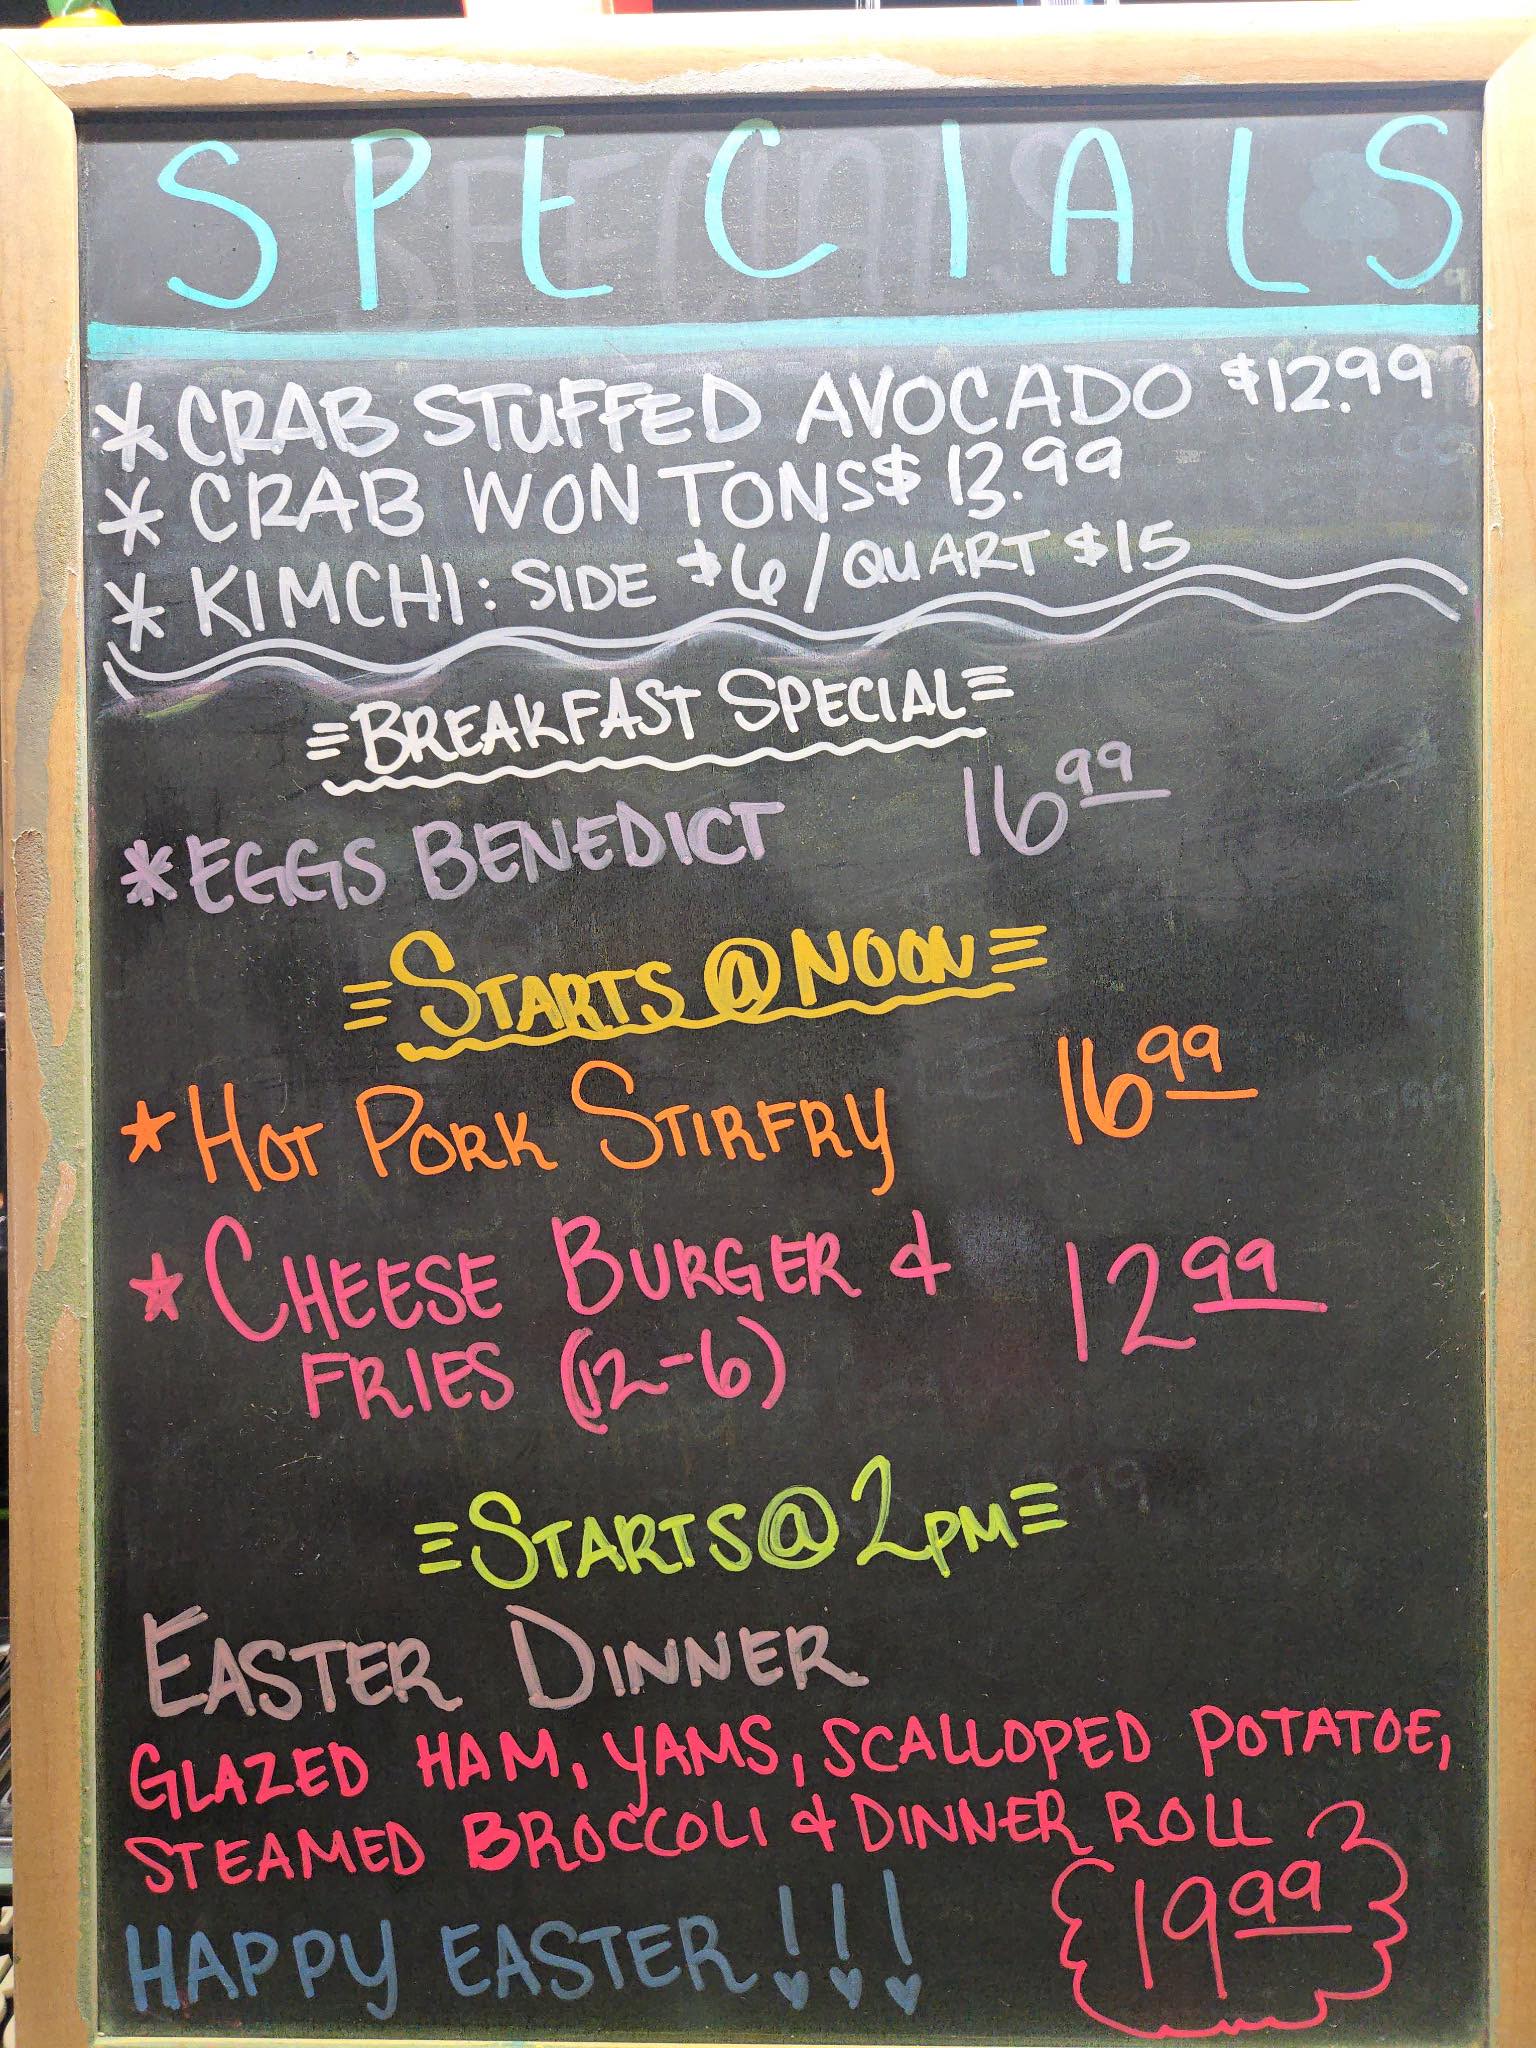 SPECIALS
* CRAB STUFFED AVOCADO $12.99
* CRAB WON TONS $13.99
* KIMCHI: SIDE $6/QUART $15
BREAKFAST SPECIAL
* EGGS BENEDICT 16.99
STARTS @ NOON
* HOT PORK STIRFRY 16.99
* CHEESE BURGER & 12.99
FRIES (12-6)
STARTS @ 2PM
EASTER DINNER
GLAZED HAM, YAMS, SCALLOPED POTATOE,
STEAMED BROCCOLI & DINNER ROLL
HAPPY EASTER!!! 19.99